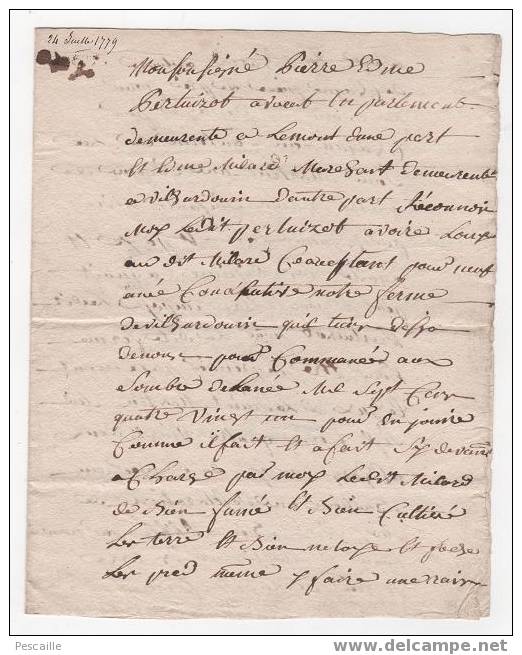 24 Juillet 1779
Moy soussigné Pierre Edme
Perluizot avocat en parlement
demeurente a Lemont dune part
Et Edme Milard Marchant demeurent
a vilhardouin dautre part Reconnoir
Moy Ledit perluizot avoire Loué
au dit Milard Cequeptant pour neuf
anée Consecutive notre ferme
de vilhardouin quil tien desja
de nous pour Commancée aux
Sombre de Lanée Mil Sept Cens
quatre vingt un pour en jouire
Comme il fait Et a fait Sy devant
a Charge par moy Ledit Milard
de Bien fumé Et Bien Cultivé
Les terre Et Bien netoye Et
Les pred meme y faire une
Pescaille
delcampe.net